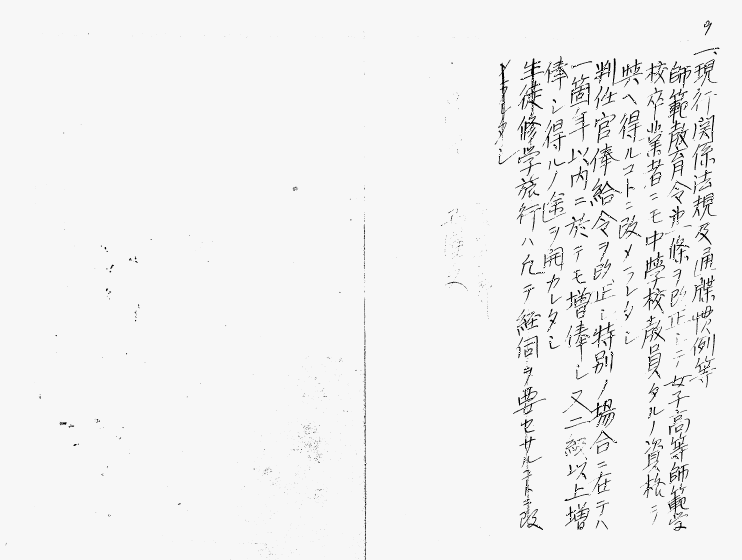 9
一、現行関係法規及通牒慣例等
師範教育令第一條ヲ改正シテ女子高等師範学
校卒業者ニモ中学校教員タルノ資格ヲ
與ヘ得ルコトニ改メラレタシ
判任官俸給令ヲ改正シ特別ノ場合ニ在テハ
一箇年以内ニ於テモ増俸シ又二級以上増
俸シ得ルノ途ヲ開カレタシ
生徒修学旅行ハ凡テ経伺ヲ要セサルコトニ改